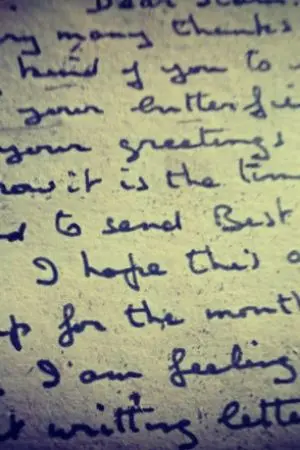 Dear
ry many thanks
kind of you to
your
your greetings
now it is the tim
nd to send Best
I hope this
up for the mont
I am feeling
t writting lette